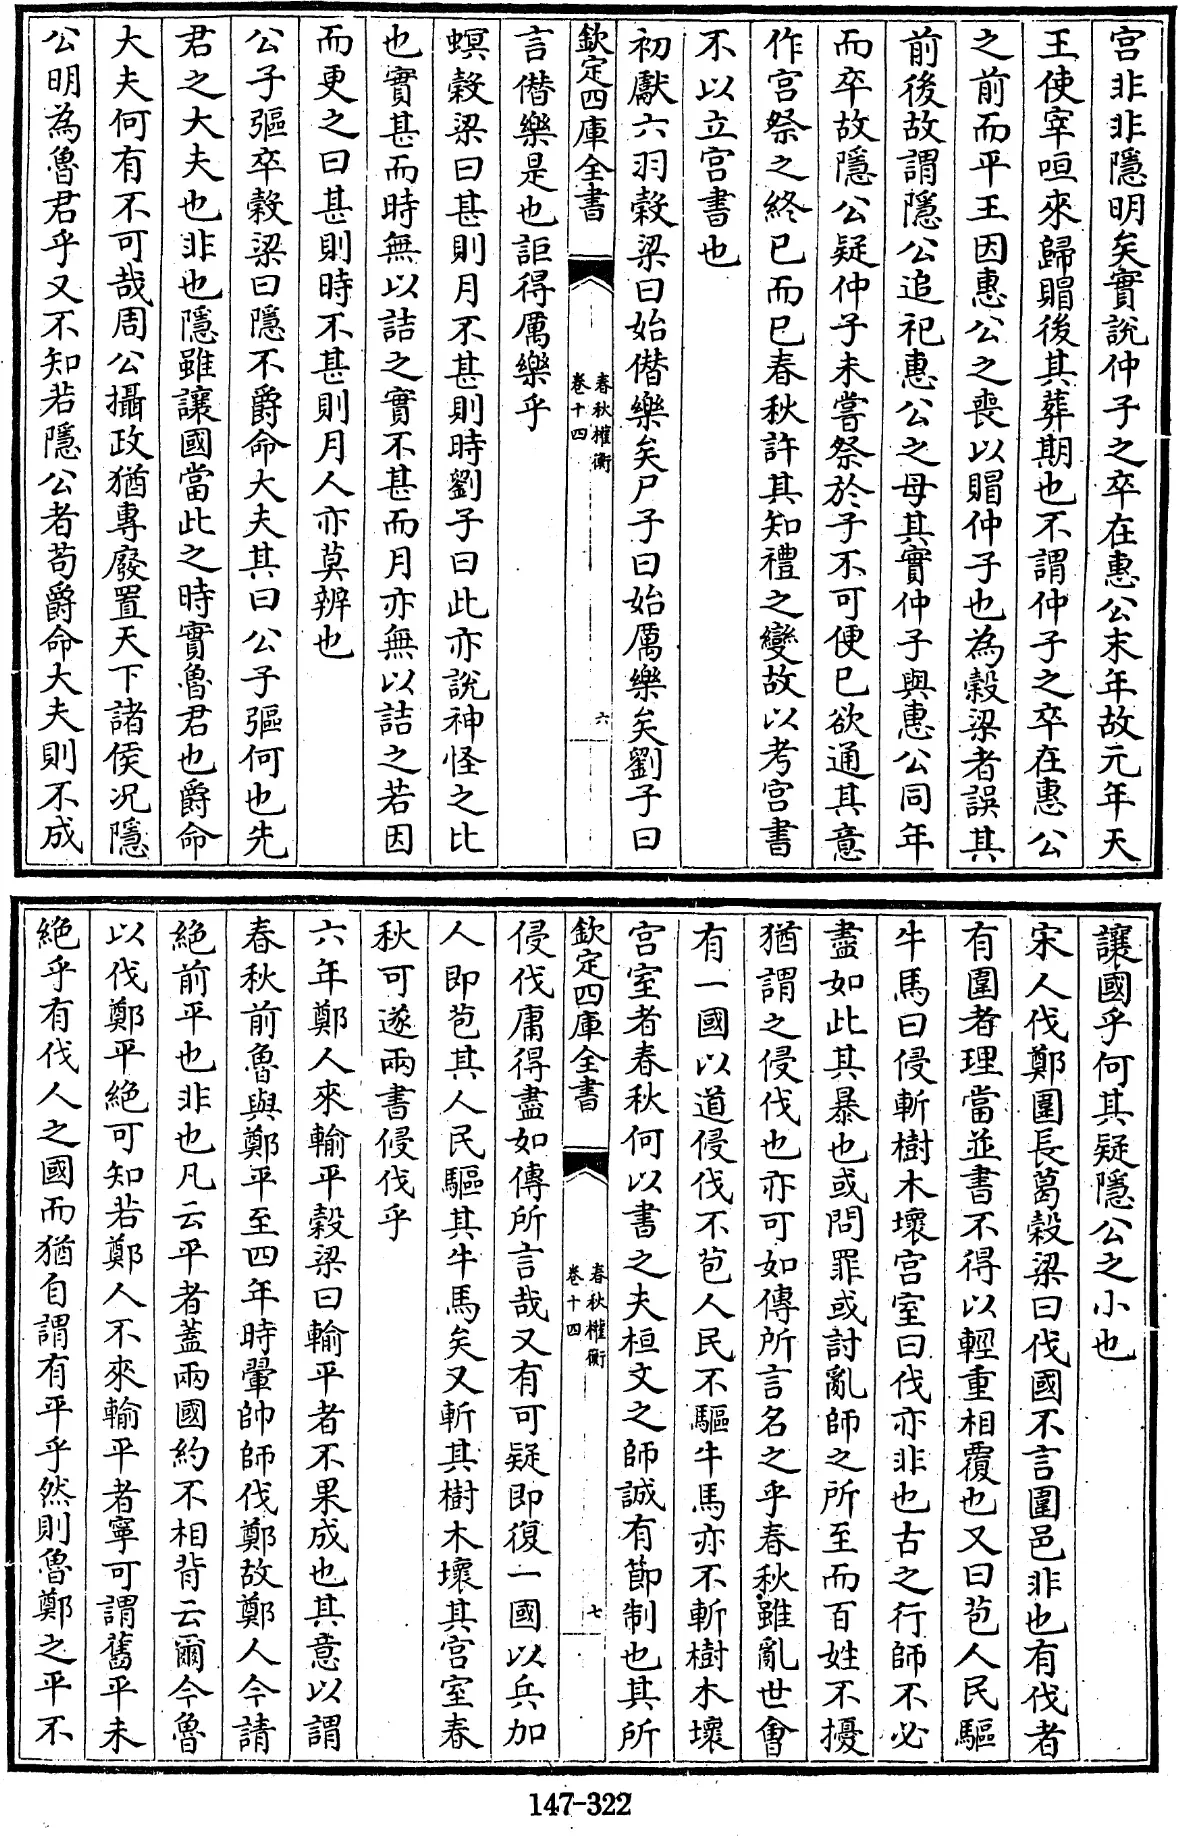 宫非非隱明矣實説仲子之卒在惠公末年故元年天
王使宰咺來歸賵後其葬期也不謂仲子之卒在惠公
之前而平王因惠公之喪以賵仲子也為榖梁者誤其
前後故謂隱公追祀惠公之母其實仲子與惠公同年
而卒故隱公疑仲子未嘗祭於子不可便已欲通其意
作宫祭之終已而已春秋許其知禮之變故以考宫書
不以立宫書也
初獻六羽榖梁曰始僭樂矣尸子曰始厲樂矣劉子曰
欽定四庫全書
春秋權衡
卷十四
六
言僭樂是也詎得厲樂乎
螟榖梁曰甚則月不甚則時劉子曰此亦説神怪之比
也實甚而時無以詰之實不甚而月亦無以詰之若因
而更之曰甚則時不甚則月人亦莫辨也
公子彄卒榖梁曰隱不爵命大夫其曰公子彄何也先
君之大夫也非也隱雖讓國當此之時實魯君也爵命
大夫何有不可哉周公攝政猶專廢置天下諸侯况隱
公明為魯君乎又不知若隱公者苟爵命大夫則不成
讓國乎何其疑隱公之小也
宋人伐鄭圍長葛榖梁曰伐國不言圍邑非也有伐者
有圍者理當並書不得以輕重相覆也又曰苞人民驅
牛馬曰侵斬樹木壞宫室曰伐亦非也古之行師不必
盡如此其暴也或問罪或討亂師之所至而百姓不擾
猶謂之侵伐也亦可如傳所言名之乎春秋雖亂世㑹
有一國以道侵伐不苞人民不驅牛馬亦不斬樹木壞
宫室者春秋何以書之夫桓文之師誠有節制也其所
欽定四庫全書
春秋權衡
卷十四
七
侵伐庸得盡如傳所言哉又有可疑即復一國以兵加
人即苞其人民驅其牛馬矣又斬其樹木壞其宫室春
秋可遂兩書侵伐乎
六年鄭人來輸平榖梁曰輸平者不果成也其意以謂
春秋前魯與鄭平至四年時翬帥師伐鄭故鄭人今請
絶前平也非也凡云平者蓋兩國約不相背云爾今魯
以伐鄭平絶可知若鄭人不來輸平者寧可謂舊平未
絶乎有伐人之國而猶自謂有平乎然則魯鄭之平不
147-322